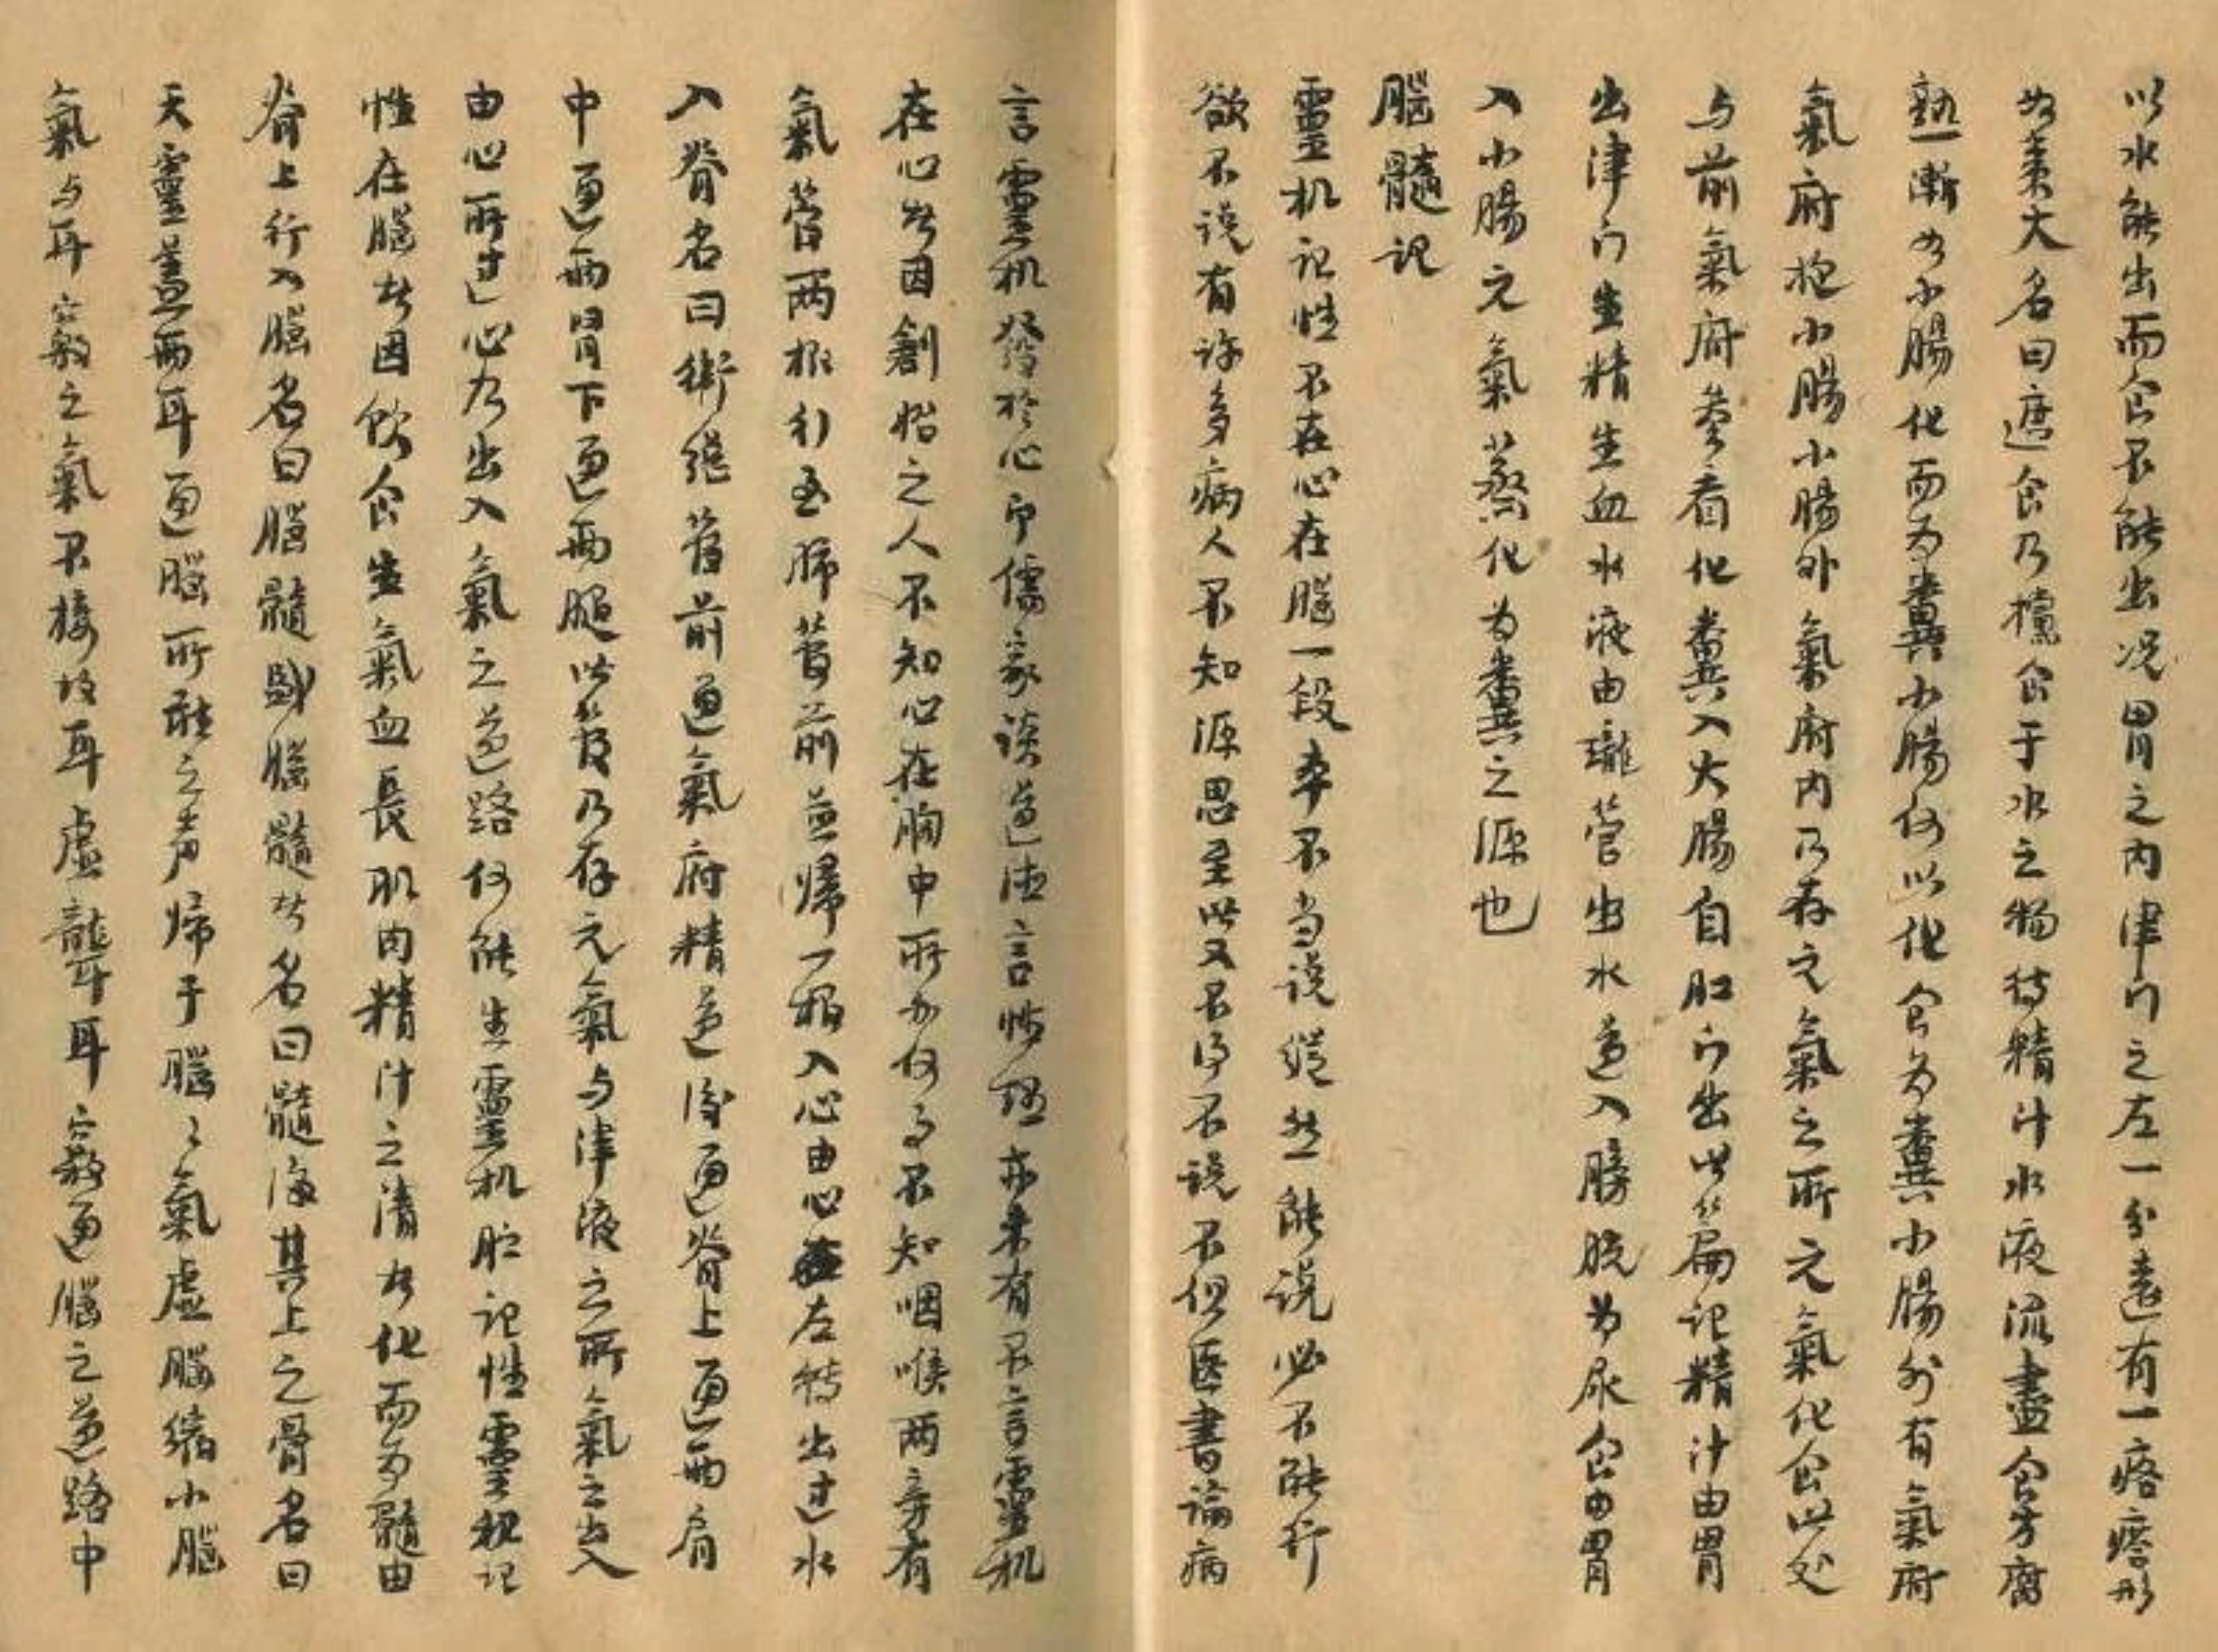 以水能出而食不能出况胃之内津门之左一分遠有一疙瘩形
如棗大名曰遮食乃攩食于水之物待精汁水液流盡食方腐
熟漸入小腸化而为糞小腸何以化食为糞小腸外有氣府
氣府抱小腸小腸外氣府内乃存元氣之所元氣化食此处
与前氣府參看化糞入大腸自肛门出此篇记精汁由胃
出津门生精生血水液由瓏管出水道入膀胱为尿食由胃
入小腸元氣蒸化为糞之源也
腦髓记
靈机记性不在心在腦一段本不当说縱然能说必不能行
欲不说有许多病人不知源思至此又不得不说不但医書論病
言靈机發於心即儒家谈道德言性理亦未有不言靈机
在心者因創始之人不知心在胸中所办何事不知咽喉两旁有
氣管两根行至肺管前並歸一根入心由心左转出过水
入脊名曰衛總管前通氣府精道後通脊上通两肩
中通两腎下通两腿此管乃存元氣与津液之所氣之出入
由心所过心乃出入氣之道路何能生靈机贮记性靈机记
性在腦者因飲食生氣血長肌肉精汁之清者化而为髓由
脊上行入腦名曰腦髓盛腦髓者名曰髓海其上之骨名曰
天靈蓋两耳通腦所聽之声歸于腦〻氣虛腦縮小腦
氣与耳竅之氣不接故耳虛聾耳竅通腦之道路中